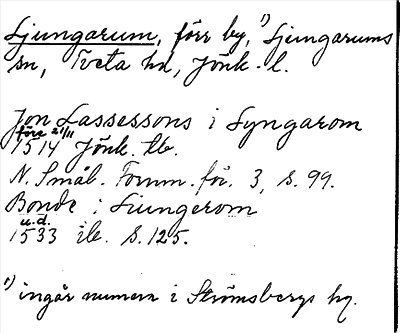 Ljungarum, förr by, ¹) Ljungarums
sn, Tveta hd, Jönk. l.
Jon Lassessons i Lyngarom
före 21/11
1514 Jönk. tb.
N. Smål. Fornm. för. 3, s. 99.
Bonde i Liungerom
u.d.
1533 ib. s. 125.
¹) ingår numera i Strömsbergs hg.